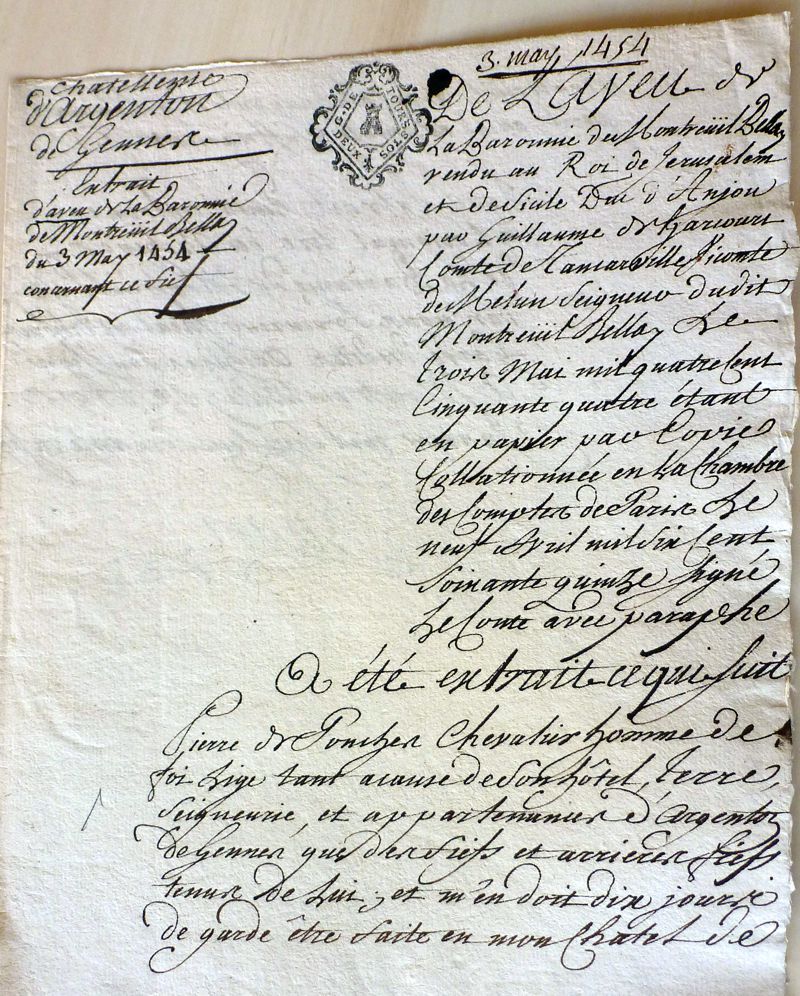 Chatellenie
d'Argenton
de Gennes
Extrait
d'aveu de La Baronnie
de Montreüil Bellay
du 3 May 1454
concernant ce fief
G. DE TOURS
DEUX SOLS
3. may 1454
De L'aveu de
La Baronnie de Montreüil Bellay
rendu au Roi de Jerusalem
et de Sicile Duc d'Anjou
par Guillaume de harcourt
Comte de Tancarville Vicomte
de Melun Seigneur dudit
Montreüil Bellay Le
trois Mai mil quatre Cent
Cinquante quatre étant
en papier par Copie
Collationnée en La Chambre
des Comptes de Paris Le
neuf Avril mil Six Cent
Soixante quinze signé
Le Conte avec paraphe
A été extrait ce qui suit
Pierre de Ponches Chevalier homme de
foi Lige tant a cause de Son hôtel, terre,
Seigneurie, et appartenances d'Argenton
de Gennes que des fiefs et arrieres fiefs
tenus de Lui; et m'en doit dix jours
de garde être faite en mon Chatel de